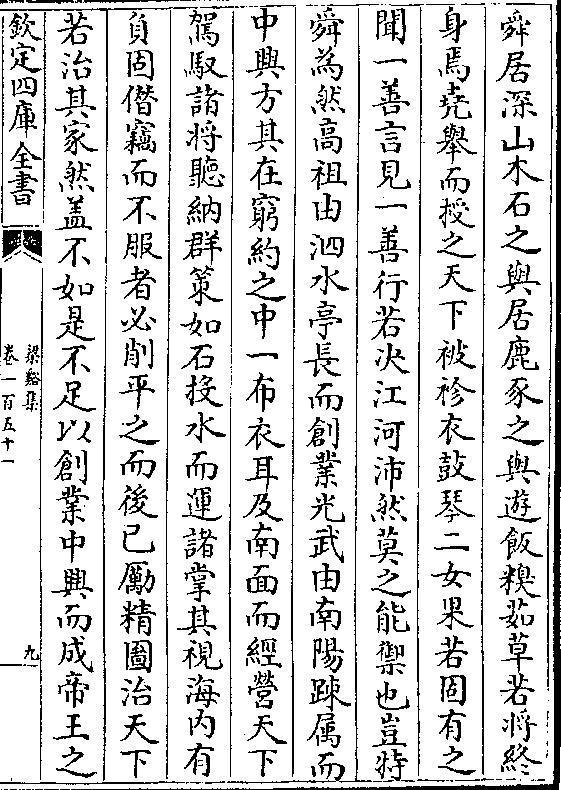 舜居深山木石之與居鹿豕之與遊飯糗茹草若將終
身焉堯舉而授之天下被袗衣鼓琴二女果若固有之
聞一善言見一善行若决江河沛然莫之能禦也豈特
舜為然高祖由泗水亭長而創業光武由南陽踈属而
中興方其在窮約之中一布衣耳及南面而經營天下
駕馭諸將聽納群策如石投水而運諸掌其視海内有
負固僭竊而不服者必削平之而後已厲精圖治天下
若治其家然盖不如是不足以創業中興而成帝王之
欽定四庫全書
梁谿集
卷一百五十一
九